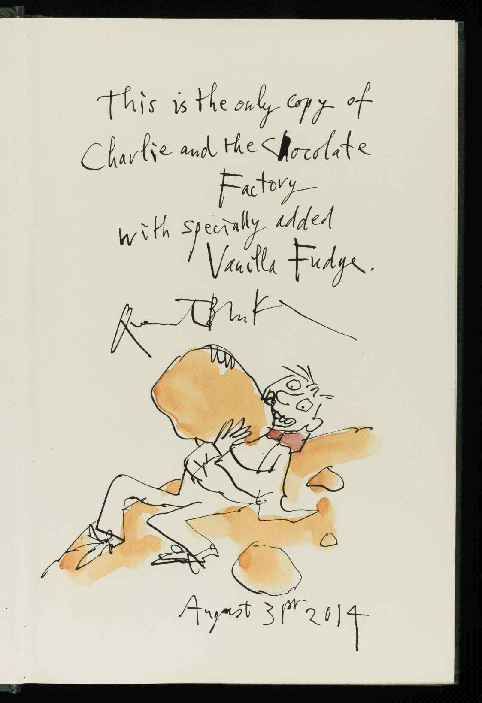 This is the only copy of
Charlie and the Chocolate
Factory
with specially added
Vanilla Fudge.
Quentin Blake
August 31st 2014